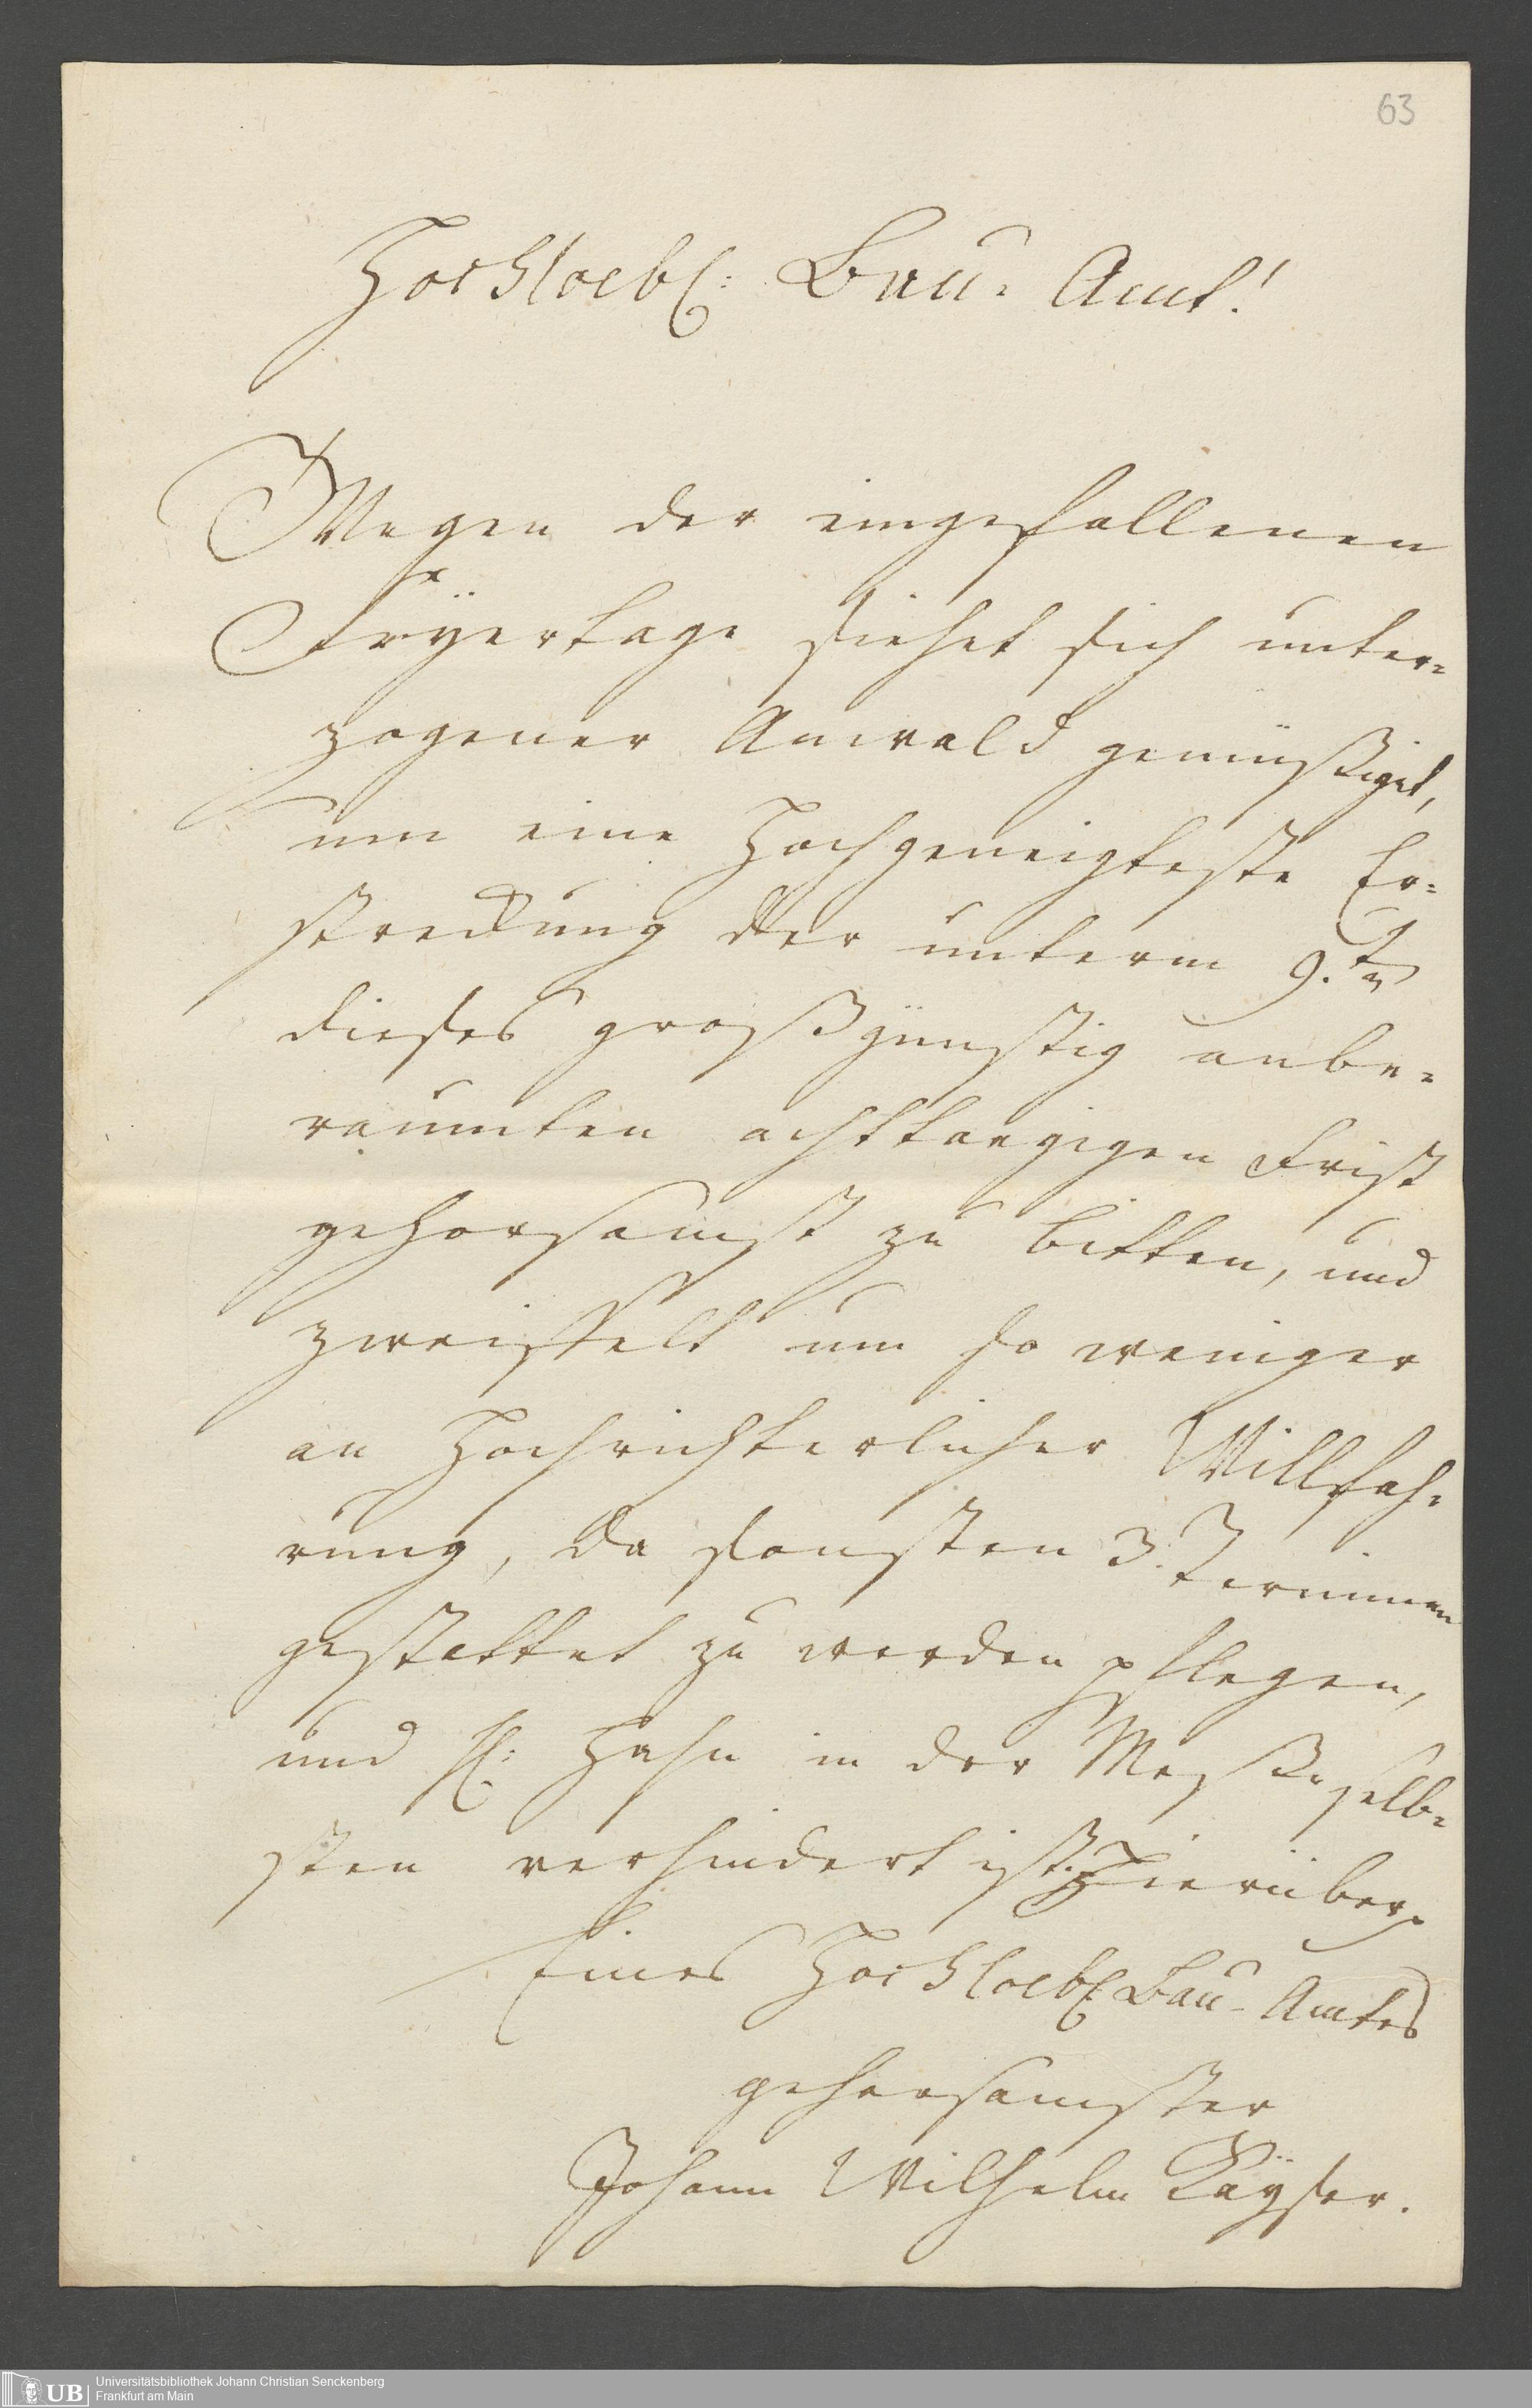 63
Hochloebl: Bau-Amt!
Wegen der eingefallenen
Feÿertage siehet sich unter-
zogener Anwald gemüßiget,
um eine Hochgeneigteste Er-
streckung der unterm 9.ten
dieses großgünstig anbe-
raumten achttaegigen Frist
gehorsamst zu bitten, und
zweifelt um so weniger
an Hochrichterlicher Willfah-
rung, da sonsten 3. Terminen
gestattet zu werden pflegen,
und H: Hahn in der Meße selb-
sten verhindert ist. Hierüber
Eines Hochloebl Bau-Amtes
gehorsamster
Johann Wilhelm Kaÿser.
UB
Universitätsbibliothek Johann Christian Senckenberg
Frankfurt am Main